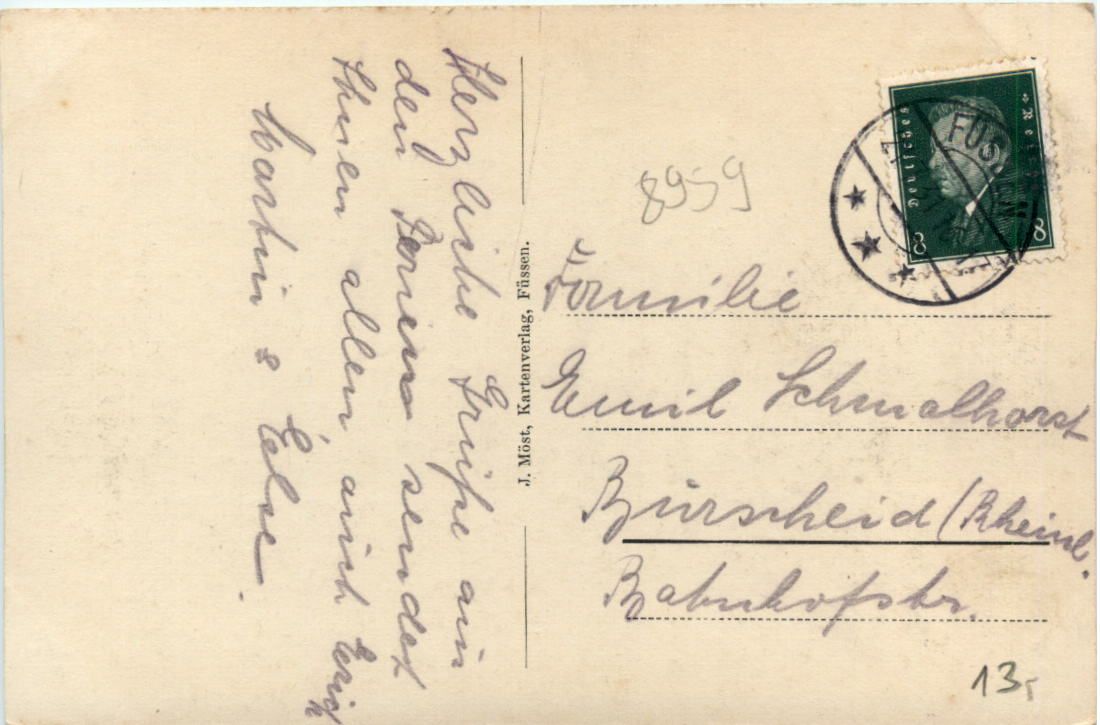 Herzliche Grüße aus
den Ferien sendet
Ihnen allen auch Erich
Martin & Else.
J. Möst, Kartenverlag, Füssen.
8959
Deutsches Reich
8 8
FÜSSEN
Familie
Emil Schmalhorst
Burscheid (Rheinl.
Bahnhofstr.
13,-